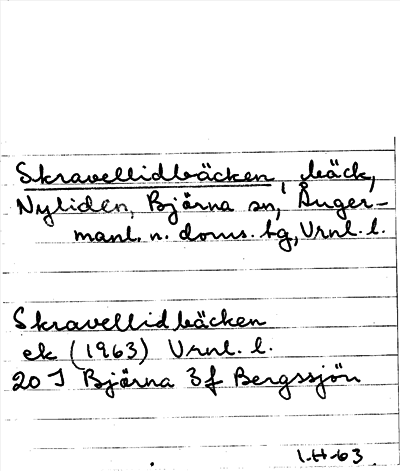 Skravellidbäcken, bäck,
Nyliden, Bjärna sn, Ånger-
manl. n. doms. tg, Vrnl. l.
Skravellidbäcken
ek (1963) Vrnl. l.
20 I Bjärna 3f Bergssjön
I.H-63